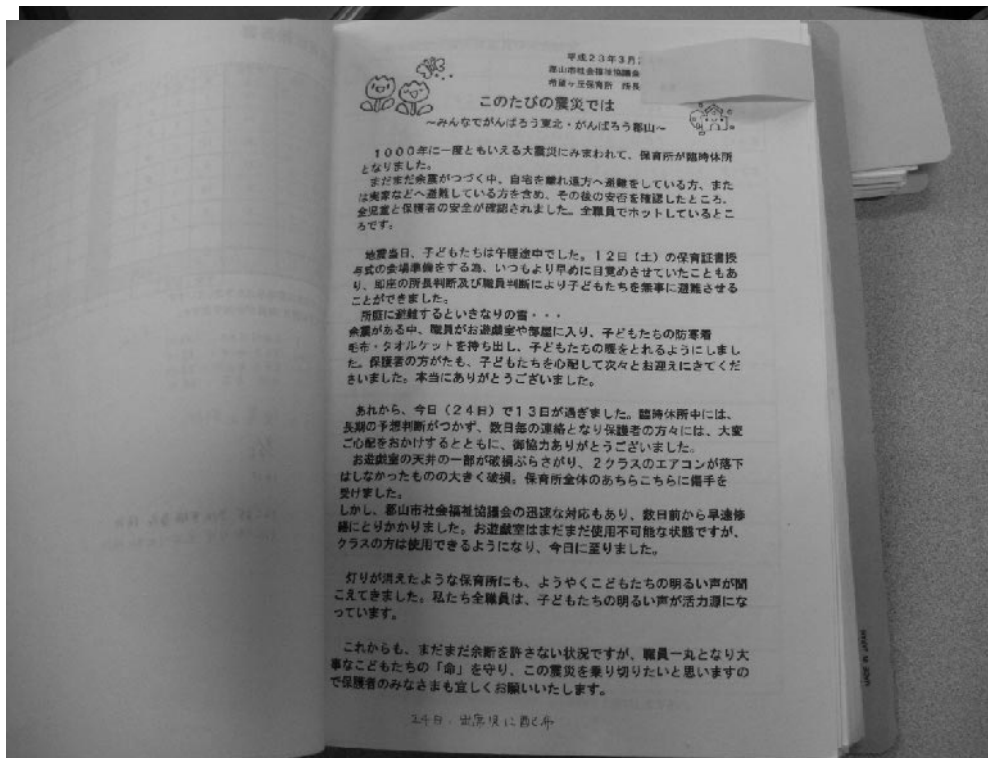 平成23年3月
郡山市社会福祉協議会
希望ヶ丘保育所 所長
このたびの震災では
～みんなでがんばろう東北・がんばろう郡山～
1000年に一度ともいえる大震災にみまわれて、保育所が臨時休所
となりました。
まだまだ余震がつづく中、自宅を離れ遠方へ避難をしている方、また
は実家などへ避難している方を含め、その後の安否を確認したところ、
全児童と保護者の安全が確認されました。全職員でホットしているとこ
ろです。
地震当日、子どもたちは午睡途中でした。12日（土）の保育証書授
与式の会場準備をする為、いつもより早めに目覚めさせていたこともあ
り、即座の所長判断及び職員判断により子どもたちを無事に避難させる
ことができました。
所庭に避難するといきなりの雪・・・
余震がある中、職員がお遊戯室や部屋に入り、子どもたちの防寒着
毛布・タオルケットを持ち出し、子どもたちの暖をとれるようにしまし
た。保護者の方がたも、子どもたちを心配して次々とお迎えにきてくだ
さいました。本当にありがとうございました。
あれから、今日（24日）で13日が過ぎました。臨時休所中には、
長期の予想判断がつかず、数日毎の連絡となり保護者の方々には、大変
ご心配をおかけするとともに、御協力ありがとうございました。
お遊戯室の天井の一部が破損ぶらさがり、2クラスのエアコンが落下
はしなかったものの大きく破損。保育所全体のあちらこちらに傷手を
受けました。
しかし、郡山市社会福祉協議会の迅速な対応もあり、数日前から早速修
繕にとりかかりました。お遊戯室はまだまだ使用不可能な状態ですが、
クラスの方は使用できるようになり、今日に至りました。
灯りが消えたような保育所にも、ようやくこどもたちの明るい声が聞
こえてきました。私たち全職員は、子どもたちの明るい声が活力源にな
っています。
これからも、まだまだ余断を許さない状況ですが、職員一丸となり大
事なこどもたちの「命」を守り、この震災を乗り切りたいと思いますの
で保護者のみなさまも宜しくお願いいたします。
24日、出席児に配布